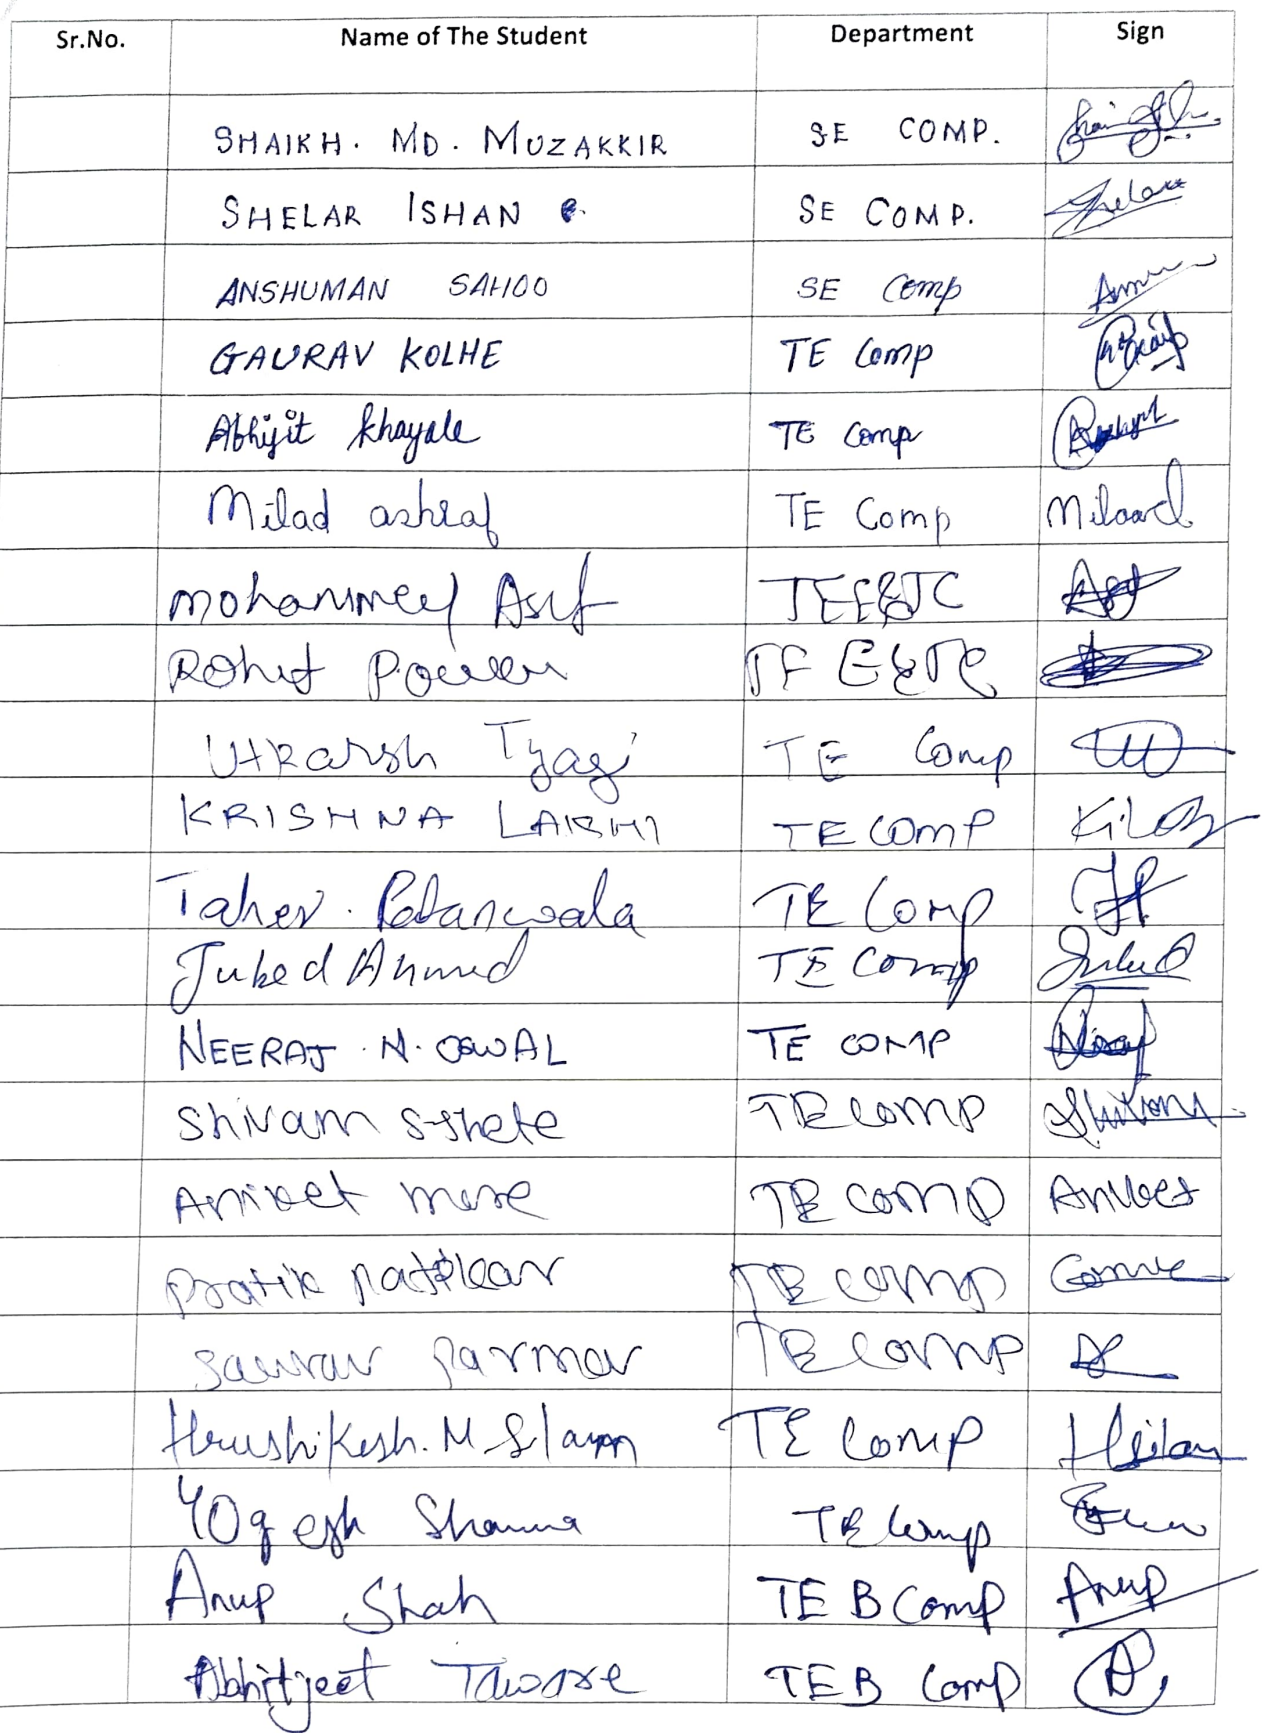 Sr.No. Name of The Student Department Sign
SHAIKH. MD. MUZAKKIR SE COMP.
SHELAR ISHAN SE COMP. Shelar
ANSHUMAN SAHOO SE Comp
GAURAV KOLHE TE Comp
Abhijit Khayale TE Comp
Milad ashraf TE Comp Milaad
mohammed Asif TE E&TC
Rohit Pawar TE E&TC
Utkarsh Tyagi TE Comp
KRISHNA LAKHI TE COMP
Taher. Patanwala TE Comp
Jubed Ahmed TE Comp
NEERAJ . N. OSWAL TE COMP
Shivam S. Shete TE COMP
Aniket more TE COMP Aniket
Pratik TE COMP
Saurav Parmar TE COMP
Hrushikesh. M TE Comp
Yogesh Sharma TE Comp
Anup Shah TE B Comp Anup
Abhitjeet Tawore TE B Comp